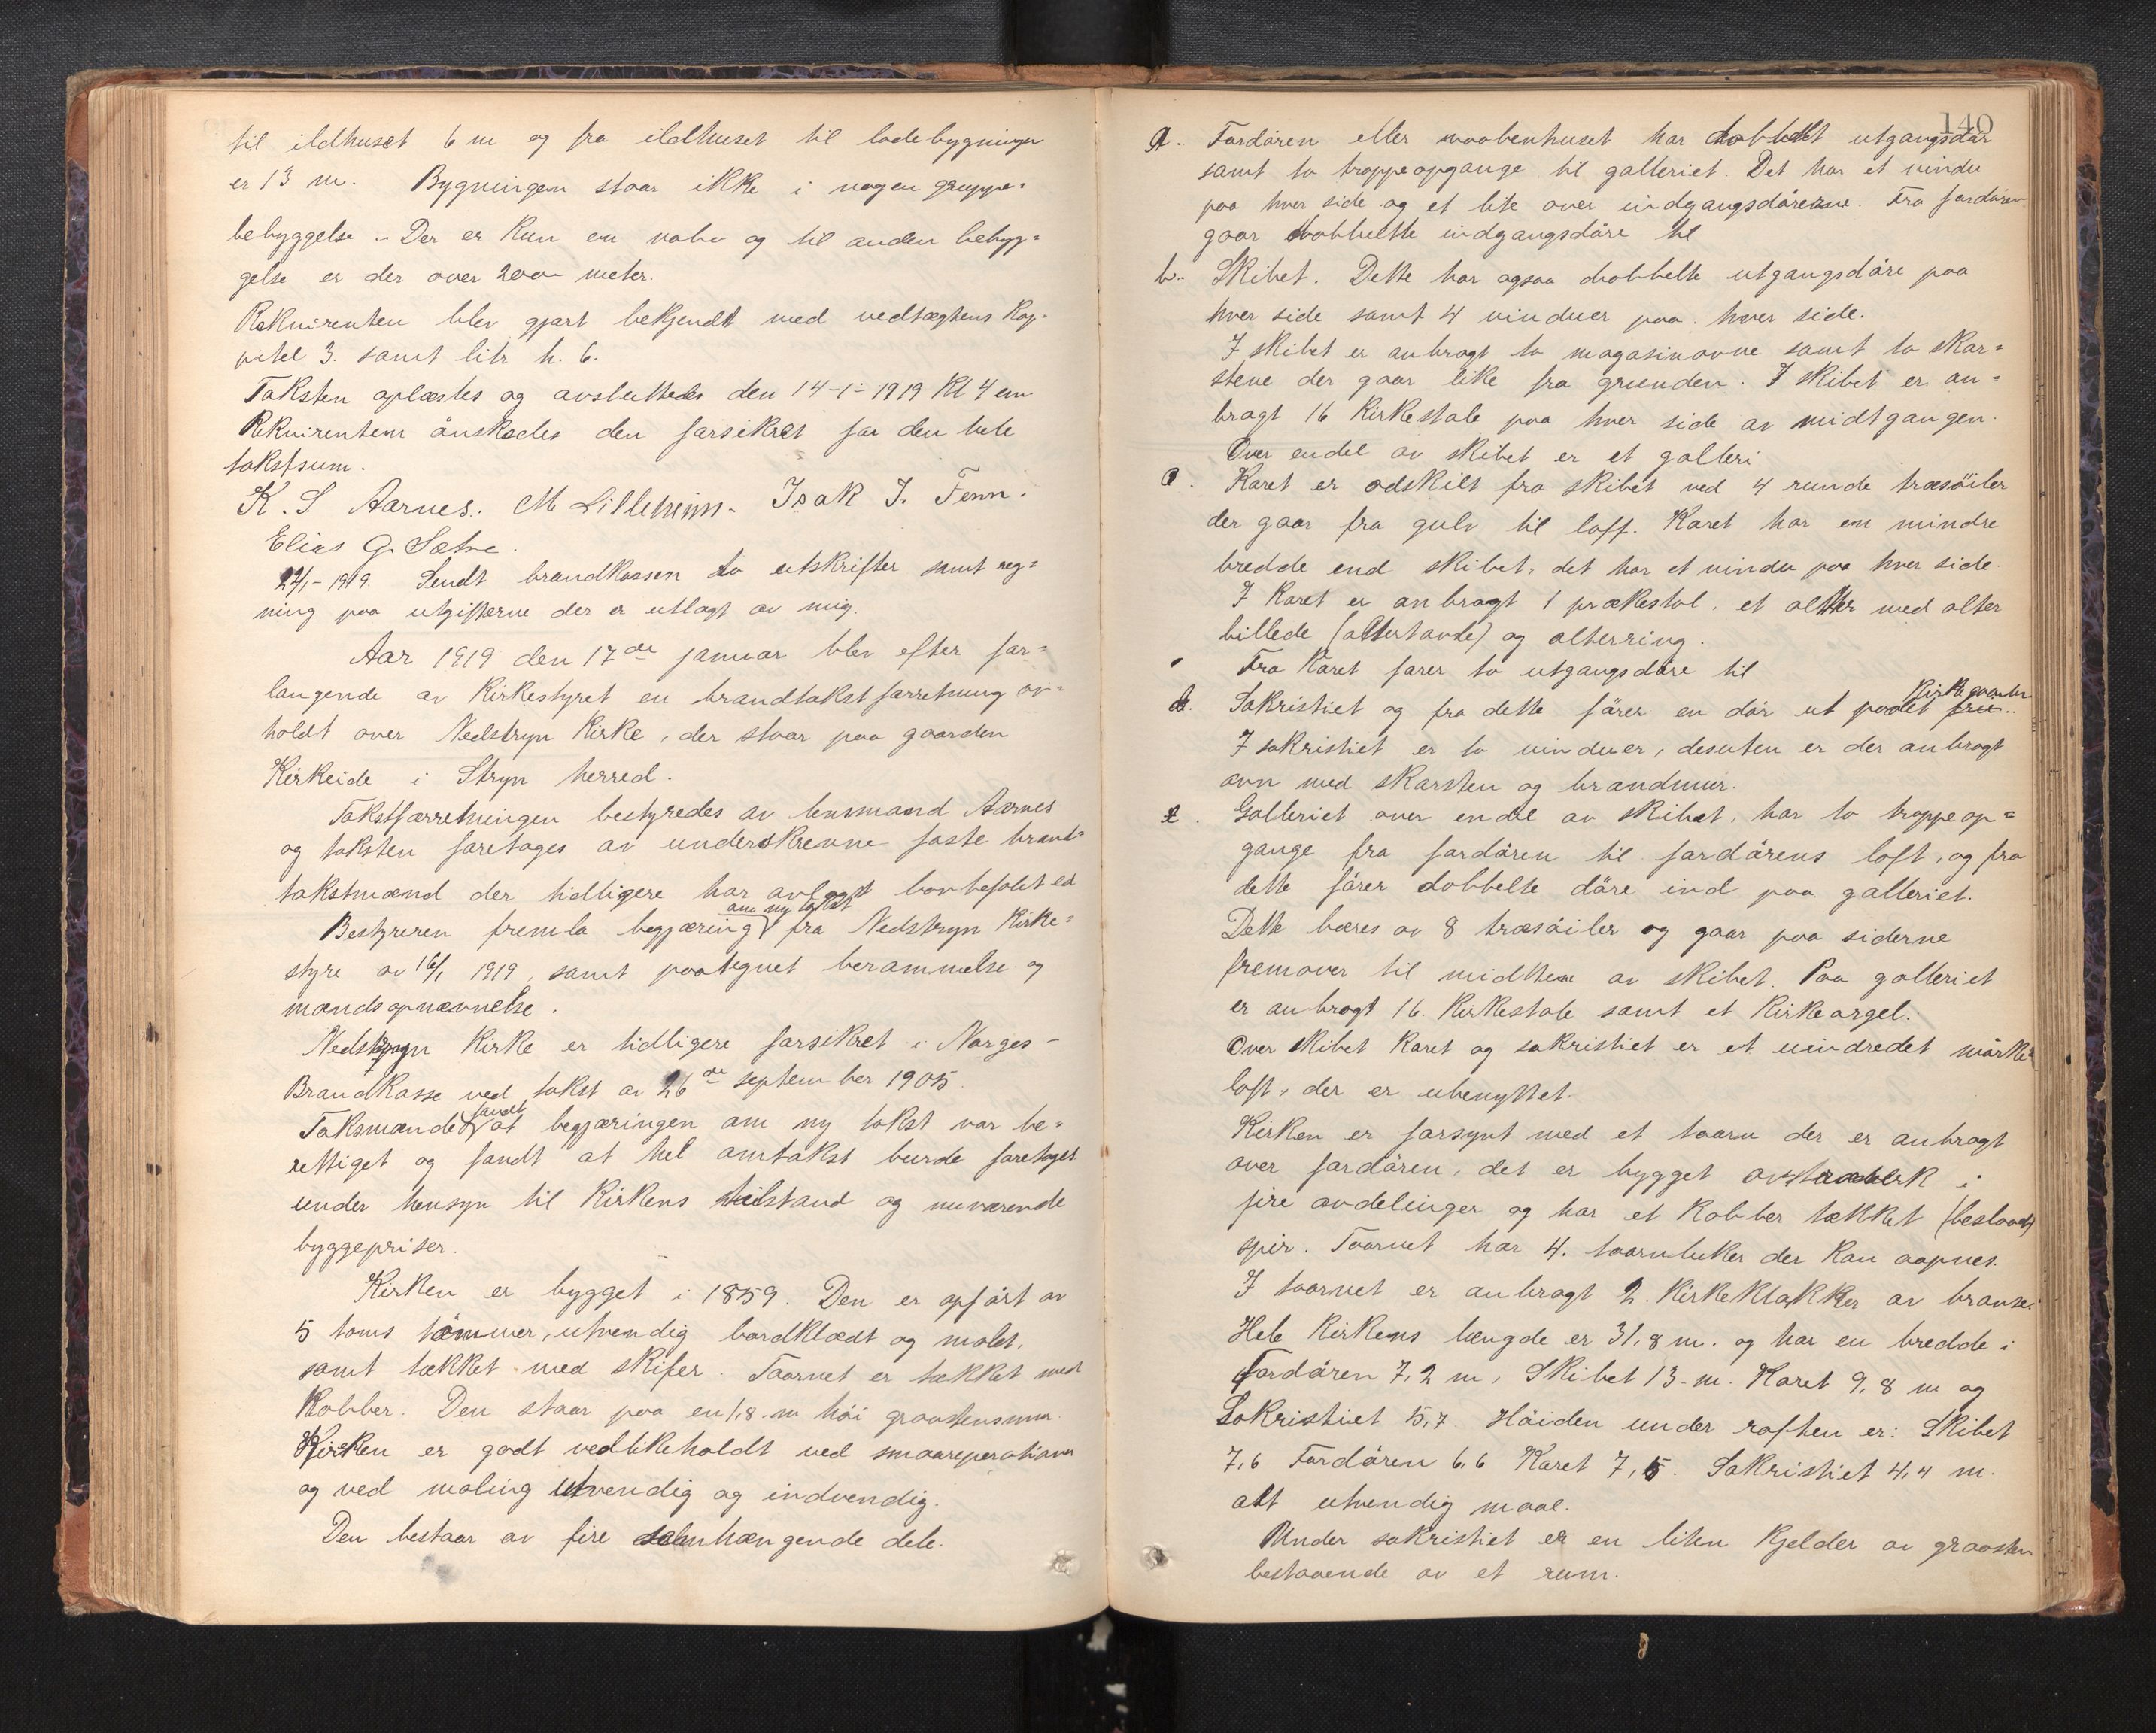 til ildhuset 6 m og fra ildhuset til ladebygningen
er 13 m. Bygningen staar ikke i nogen gruppe=
bebyggelse .. Der er kun en nabo og til anden bebyg=
gelse er der over 200 meter.
Rekvirenten blev gjort bekjendt med vedtægtens Ka=
pitel 3. samt litr h. 6.
Taksten oplæstes og avsluttedes den 14-1-1919 Kl 4 em
Rekvirenten önskedes den forsikret for den hele
takstsum.
K. S Aarnes. M Lilleheim. Isak J. Tenn.
Elias G. Sætre.
22/1-1919. Sendt brandkassen to utskrifter samt reg=
ning paa utgifterne der er utlagt av mig.
Aar 1919 den 17de januar blev efter for=
langende av Kirkestyret en brandtakstforretning av=
holdt over Nedstryn Kirke, der staar paa gaarden
Kirkeide i Stryn herred.
Takstforretningen bestyredes av lensmand Aarnes
og taksten foretoges av underskrevne faste brand=
takstmænd der tidligere har avlagt lovbefalet ed
Bestyreren fremla begjæring om ny takst fra Nedstryn Kirke=
styre av 16/1 1919, samt paategnet berammelse og
mandsopnævnelse.
Nedstryn Kirke er tidligere forsikret i Norges-
Brandkasse ved takst av 26de september 1905.
Taksmændene fandt at begjæringen om ny takst var be=
rettiget og fandt at hel omtakst burde foretages
under hensyn til Kirkens tilstand og nuværende
byggepriser.
Kirken er bygget i 1859. Den er opfört av
5 toms tömmer, utvendig bordklædt og malet,
samt tækket med skifer. Taarnet er tækket med
Kobber. Den staar paa en 1,8 m höi graastensmur.
Kirken er godt vedlikeholdt ved smaareperationer
og ved maling utvendig og indvendig.
Den bestaar av fire samhængende dele.
140
a. Fordören eller vaabenhuset har dobbelt utgangsdör
samt to trappeopgange til galleriet. Det har et vindu
paa hver side og et lite over indgangsdörene. Fra fordören
gaar dobbelte indgangsdöre til
b. Skibet. Dette har ogsaa dobbelte utgangsdöre paa
hver side samt 4 vinduer paa hver side.
I skibet er anbragt to magasinovne samt to skor=
stene der gaar like fra grunden. I skibet er an=
bragt 16 Kirkestole paa hver side av midtgangen.
Over endel av skibet er et galleri
c. Koret er adskilt fra skibet ved 4 runde træsöiler
der gaar fra gulv til loft. Koret har en mindre
bredde end skibet, det har et vindu paa hver side.
I Koret er anbragt 1 prækestol, et alter med alter
billede (altertavle) og alterring.
Fra Koret förer to utgangsdöre til
d. Sakristiet og fra dette förer en dör ut paa Kirkegaarden
I sakristiet er to vinduer, desuten er der anbragt
ovn med skorsten og brandmur.
e. Galleriet over endel av skibet, har to trappeop=
gange fra fordören til fordörens loft, og fra
dette förer dobbelte döre ind paa galleriet.
Dette bæres av 8 træsöiler og gaar paa siderne
fremover til midten av skibet. Paa galleriet
er anbragt 16. Kirkestole samt et Kirkeorgel.
Over skibet Koret og sakristiet er et uindredet mörke=
loft, der er ubenyttet.
Kirken er forsynt med et taarn der er anbragt
over fordören, det er bygget av i
fire avdelinger og har et Kobber tækket (beslaaet)
spir. Taarnet har 4. taarnluker der kan aapnes.
I taarnet er anbragt 2. Kirkeklokker av bronse.
Hele Kirkens længde er 31,8 m. og har en bredde i
Fordören 7,2 m, Skibet 13 m. Koret 9,8 m og
Sakristiet 5,7. Höiden under raften er: Skibet
7,6 Fordören 6,6 Koret 7,5. Sakristiet 4,4 m.
alt utvendig maal.
Under sakristiet er en liten kjelder av graasten
bestaaende av et rum.